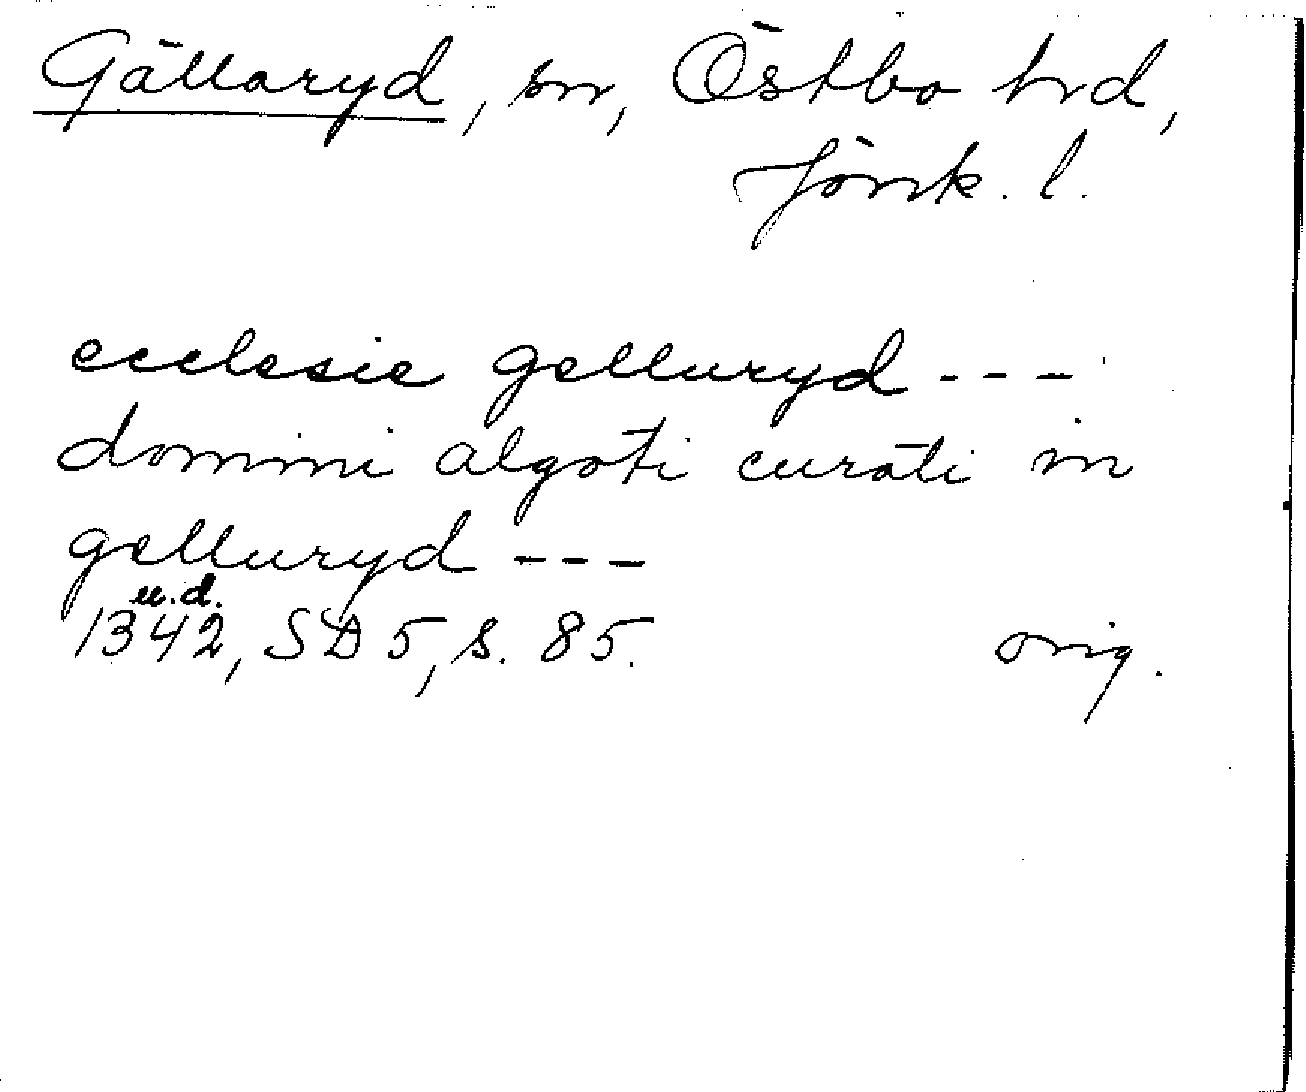 Gällaryd, sn, Östbo hd,
Jönk. l.
ecclesie gelluryd ---
domini algoti curati in
gelluryd ---
u.d.
1342, SD 5, s. 85. orig.